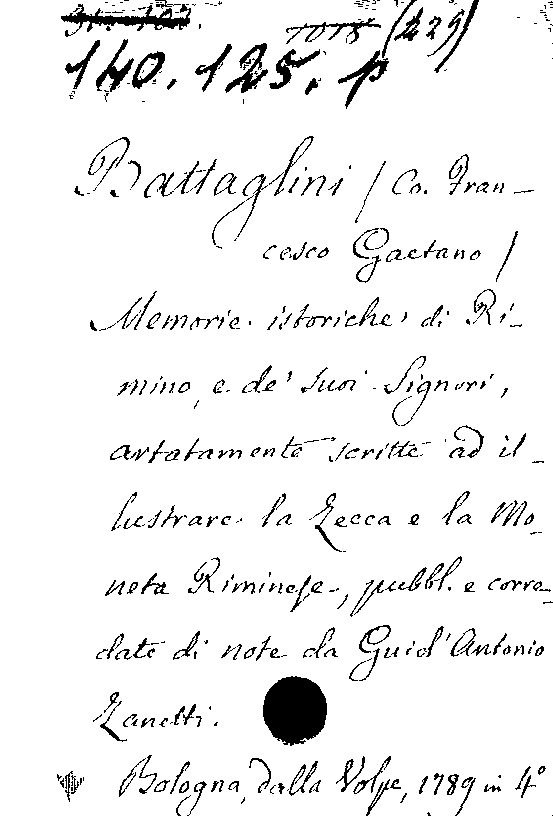 1015 (229)
140. 125. p
Battaglini / Co. Fran-
cesco Gaetano /
Memorie istoriche di Ri-
mino, e de' suoi Signori,
artatamente scritte ad il-
lustrare la Zecca e la Mo-
neta Riminese, pubbl. e corre-
date di note da Guid'Antonio
Zanetti.
Bologna, dalla Volpe, 1789 in 4°